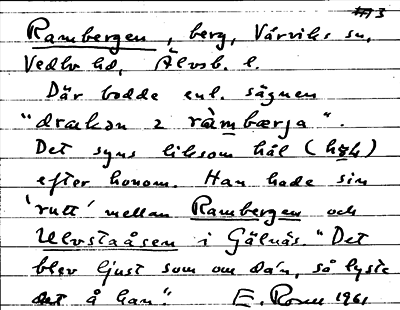 3
Rambergen, berg, Värviks sn,
Vedbo hd, Älvsb. l.
Där bodde enl. sägnen
"drakən i ràmbærja".
Det syns liksom hål (
efter honom. Han hade sin
'rutt' mellan Rambergen och
Ulvstaåsen i Gälnäs. "Det
blev ljust som om da'n, så lyste
det å han". E. Rosen 1961